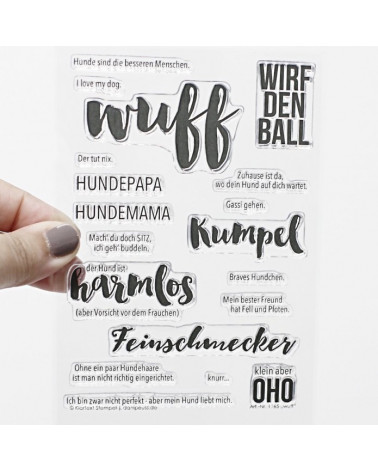 Hunde sind die besseren Menschen.
I love my dog.
wuff
WIRF
DEN
BALL
Der tut nix.
HUNDEPAPA
HUNDEMAMA
Zuhause ist da,
wo dein Hund auf dich wartet.
Gassi gehen.
Kumpel
Mach' du doch SITZ,
ich geh' buddeln.
der Hund ist
harmlos
(aber Vorsicht vor dem Frauchen)
Braves Hundchen.
Mein bester Freund
hat Fell und Pfoten.
Feinschmecker
Ohne ein paar Hundehaare
ist man nicht richtig eingerichtet.
knurr...
klein aber
OHO
Ich bin zwar nicht perfekt - aber mein Hund liebt mich.